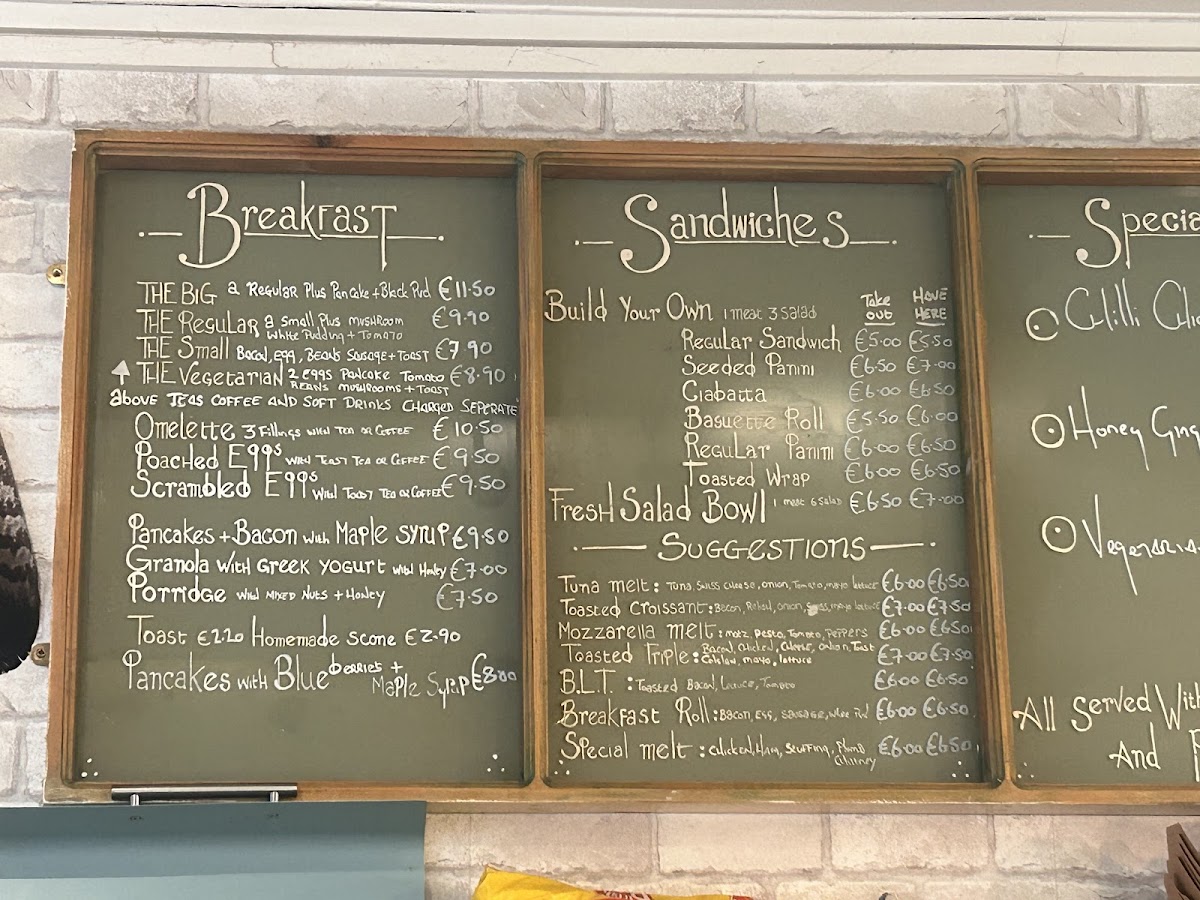 Breakfast
THE BIG a Regular Plus Pancake + Black Pud €11.50
THE Regular a Small Plus MUSHROOM €9.90
White Pudding + Tomato
THE Small Bacon, Egg, Beans Sausage + Toast €7.90
THE Vegetarian 2 eggs Pancake Tomato €8.90
BEANS MUSHROOMS + TOAST
above TEAS COFFEE AND SOFT DRINKS CHARGED SEPERATE
Omelette 3 Fillings with TEA or COFFEE €10.50
Poached Eggs with Toast Tea or Coffee €9.50
Scrambled Eggs with Toast Tea or Coffee €9.50
Pancakes + Bacon with Maple syrup €9.50
Granola with Greek yogurt with Honey €7.00
Porridge with MIXED NUTS + Honey €7.50
Toast €2.20 Homemade scone €2.90
Pancakes with Blueberries +
Maple Syrup €8.00
Sandwiches
Build Your Own 1 meat 3 salad Take out HAVE HERE
Regular Sandwich €5.00 €5.50
Seeded Panini €6.50 €7.00
Ciabatta €6.00 €6.50
Baguette Roll €5.50 €6.00
Regular Panini €6.00 €6.50
Toasted Wrap €6.00 €6.50
Fresh Salad Bowl 1 meat 6 Salad €6.50 €7.00
SUGGESTIONS
Tuna melt: Tuna, Swiss cheese, onion, Tomato, mayo lettuce €6.00 €6.50
Toasted Croissant: Bacon, Relish, onion, Swiss, mayo lettuce €7.00 €7.50
Mozzarella melt: motz, pesto, Tomato, peppers €6.00 €6.50
Toasted Triple: Bacon, chicken, cheese, onion, Toast €7.00 €7.50
Colslaw, mayo, lettuce
B.L.T.: Toasted Bacon, Lettuce, Tomato €6.00 €6.50
Breakfast Roll: Bacon, Egg, sausage, white Pud €6.00 €6.50
Special melt: chicken, Ham, Stuffing, Plumb €6.00 €6.50
Chutney
Specia
Chilli Chi
Honey Ging
Vegetar
All Served With
And